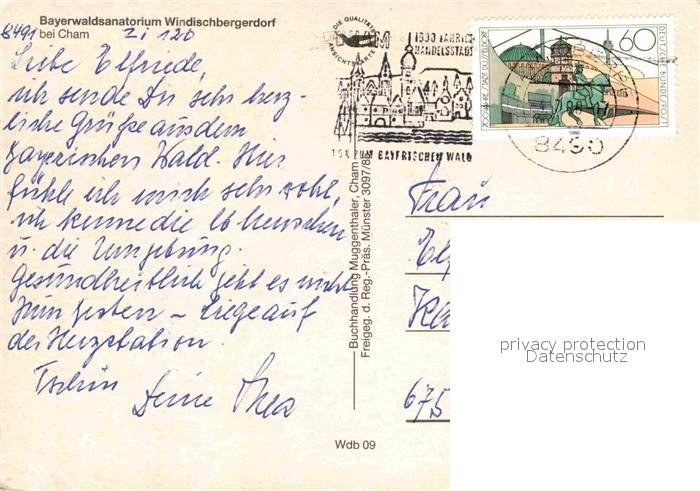 Bayerwaldsanatorium Windischbergerdorf
bei Cham
8491 Zi 120
Liebe Elfriede,
ich sende Dir sehr herz-
liche Grüße aus dem
Bayerischen Wald. Hier
fühle ich mich sehr wohl,
ich kenne die Menschen
u. die Umgebung.
Gesundheitlich geht es nicht
zum besten – liege auf
der Herzstation.
Tschüs
Deine Thea
DIE QUALITÄTS
ANSICHTSKARTE
CHAM
HANDELSSTADT
TOR ZUM BAYRISCHEN WALD
8490
60
DEUTSCHE BUNDESPOST
700 JAHRE STADT DÜSSELDORF
1988
Buchhandlung Muggenthaler, Cham
Freigeg. d. Reg.-Präs. Münster 3097/8
Frau
675
Wdb 09
privacy protection
Datenschutz